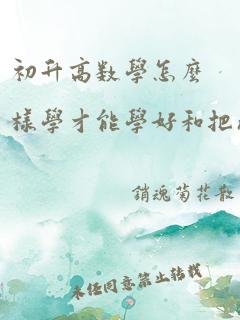 初升高数學怎麼
樣學才能學好和把
銷魂菊花散
未经同意禁止转载